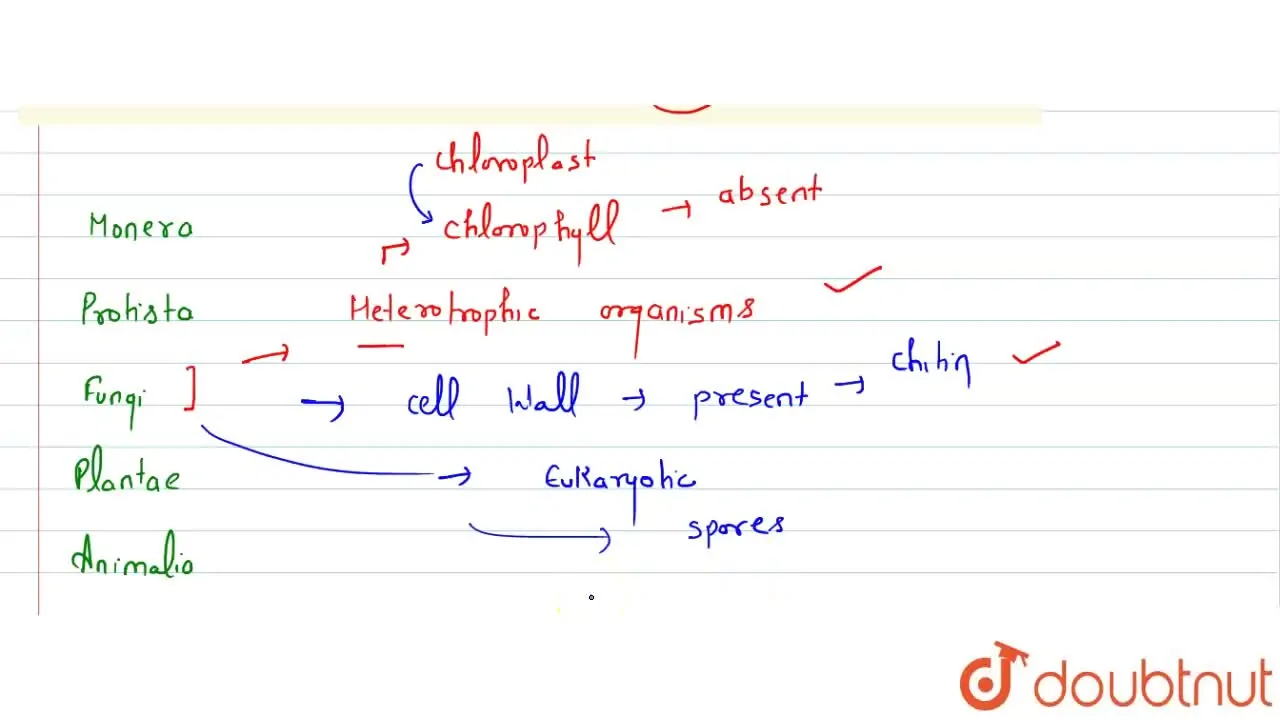 chloroplast
Monera chlorophyll → absent
Protista Heterotrophic organisms
Fungi ] → cell Wall → present → chitin
Plantae → Eukaryotic
spores
Animalia
doubtnut